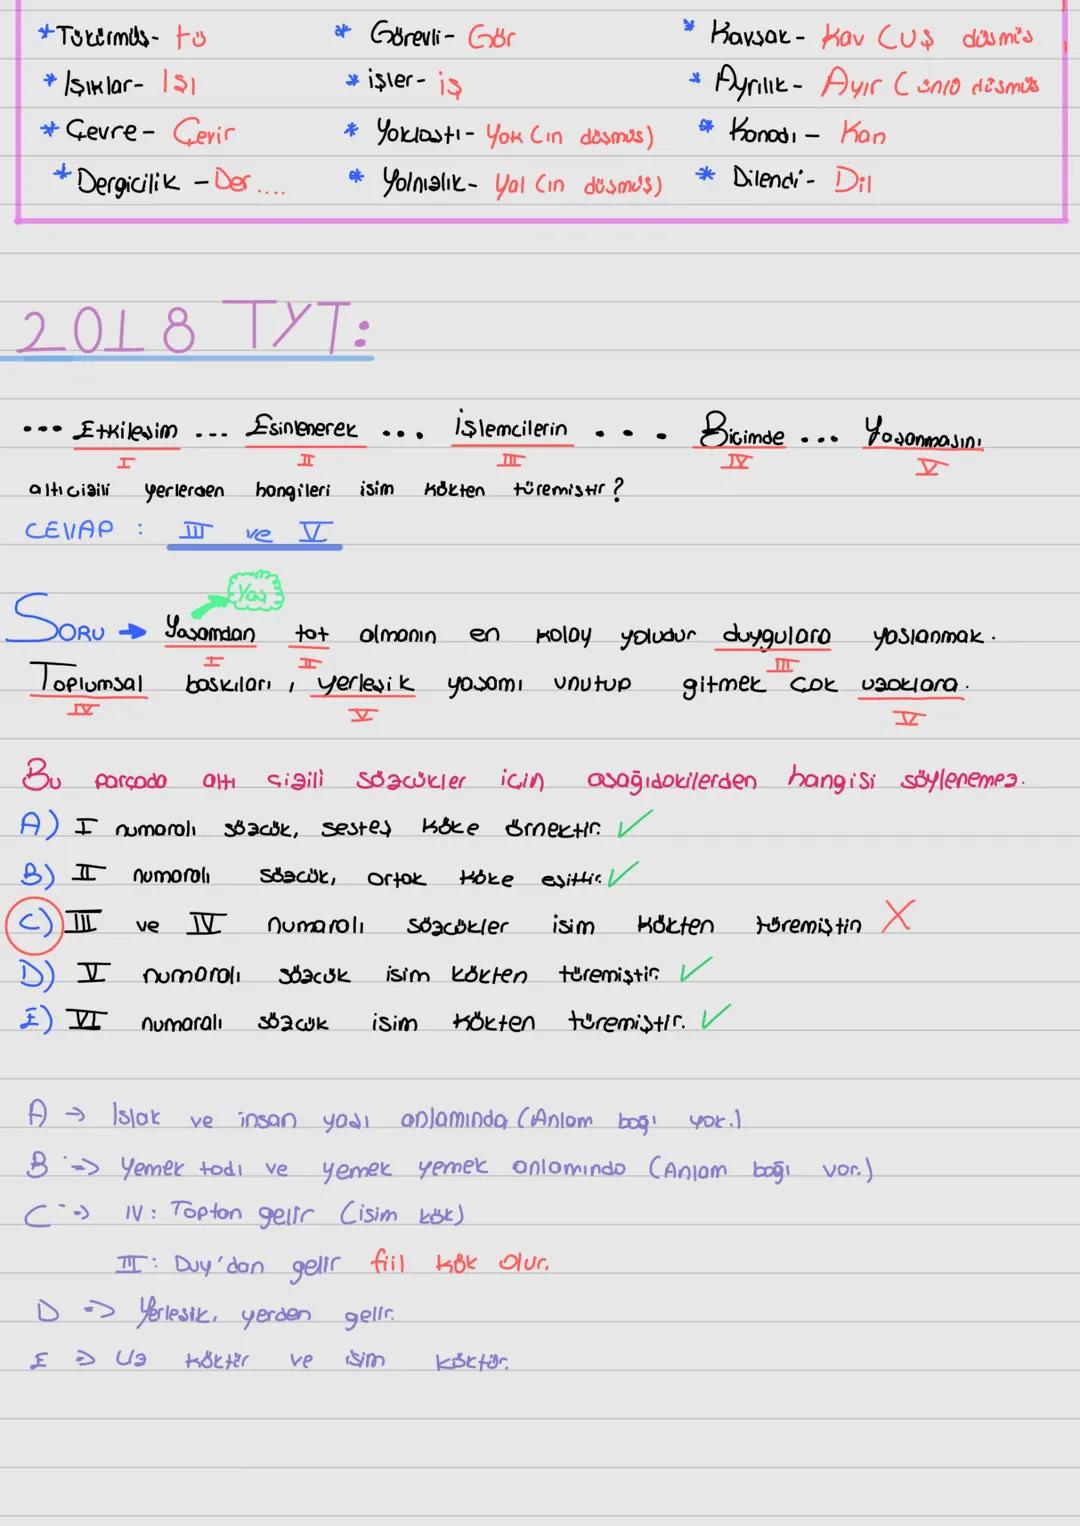 * Tükürmüş- tü * Görevli- Gör * Kavşak- Kav (uş düşmüş
* Işıklar- Işı * işler- iş * Ayrılık- Ayır (ünlü düşmüş
* Çevre- Çevir * Yoklaştı- Yok (ın düşmüş) * Kanadı- Kan
* Dergicilik -Der.... * Yalnızlık- Yal (ın düşmüş) * Dilendi- Dil
2018 TYT:
... Etkileşim ... Esinlenerek ... işlemcilerin ... Biçimde ... Yaşanmasını
I II III IV V
altıçizili yerlerden hangileri isim kökten türemiştir?
CEVAP : III ve V
Yaş
SORU → Yaşamdan tat almanın en kolay yoludur duygulara yaslanmak.
I II III
Toplumsal baskıları, yerleşik yaşamı unutup gitmek çok uzaklara.
IV V V
Bu parçada altı çizili sözcükler için aşağıdakilerden hangisi söylenemez.
A) I numaralı sözcük, sesteş köke örnektir. ✓
B) II numaralı sözcük, ortak köke eşittir. ✓
C) III ve IV numaralı sözcükler isim kökten türemiştir X
D) V numaralı sözcük isim kökten türemiştir ✓
E) VI numaralı sözcük isim kökten türemiştir. ✓
A → Islak ve insan yaşı anlamında (Anlam bağı yok.)
B => Yemek tadı ve yemek yemek anlamında (Anlam bağı var.)
C => IV: Toptan gelir (isim kök)
III: Duy'dan gelir fiil kök olur.
D => Yerleşik, yerden gelir.
E => Uz köktür ve isim köktür.